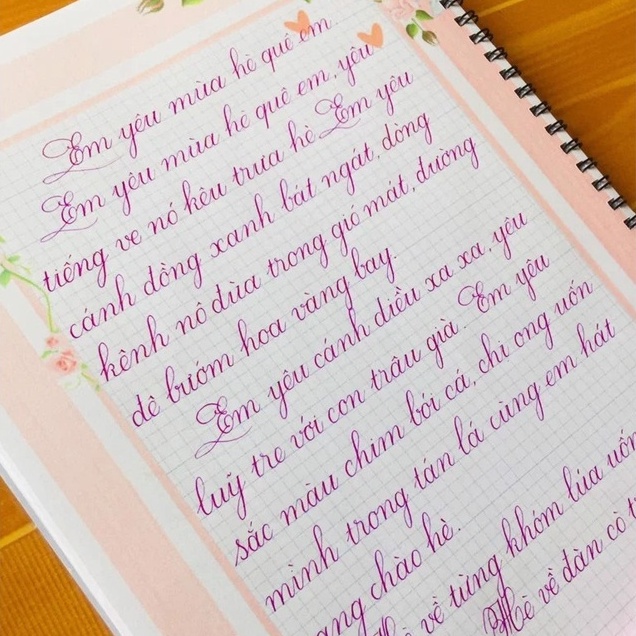 Em yêu mùa hè quê em.
Em yêu mùa hè quê em, yêu
tiếng ve nó kêu trưa hè. Em yêu
cánh đồng xanh bát ngát, dòng
kênh nô đùa trong gió mát, đường
đê bướm hoa vàng bay.
Em yêu cánh diều xa xa, yêu
luỹ tre với con trâu già. Em yêu
sắc màu chim bói cá, chị ong uốn
mình trong tán lá cùng em hát
vang chào hè.
Hè về từng khóm lúa uốn
Hè về đàn cò